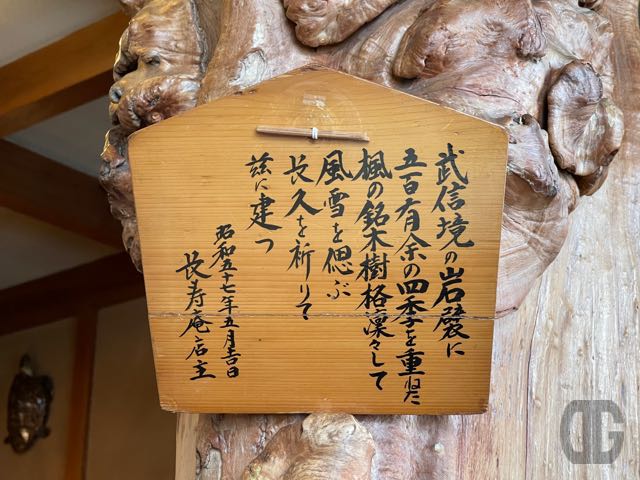 武信境の岩襞に
五百有余の四季を重ねた
楓の銘木樹格凛々して
風雪を偲ぶ
長久を祈りて
茲に建つ
昭和五十七年五月吉日
長寿庵店主
DG